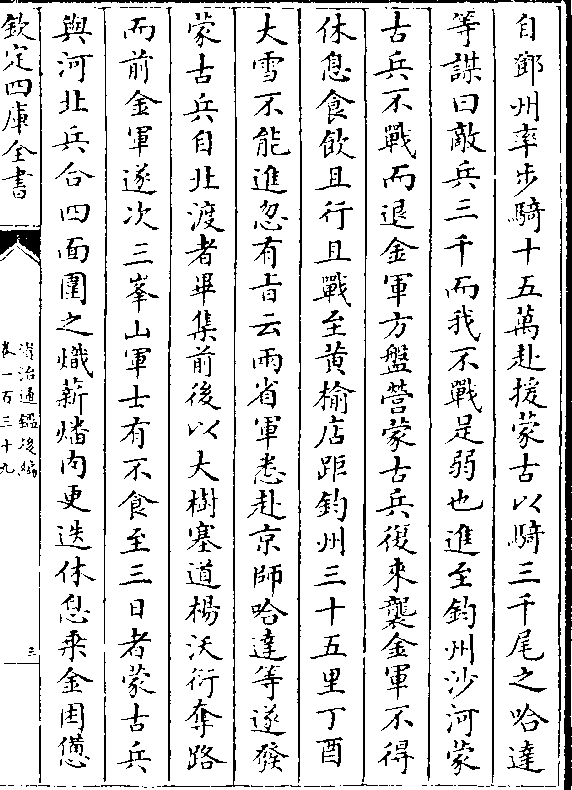 自鄧州率步騎十五萬赴援蒙古以騎三千尾之哈達
等謀曰敵兵三千而我不戰是弱也進至鈞州沙河蒙
古兵不戰而退金軍方盤營蒙古兵復來襲金軍不得
休息食飲且行且戰至黃榆店距鈞州三十五里丁酉
大雪不能進忽有旨云兩省軍悉赴京師哈達等遂發
蒙古兵自北渡者畢集前後以大樹塞道楊沃衍奪路
而前金軍遂次三峯山軍士有不食至三日者蒙古兵
與河北兵合四面圍之熾薪燔肉更迭休息乘金困憊
欽定四庫全書
資治通鑑後編
卷一百三十九
三